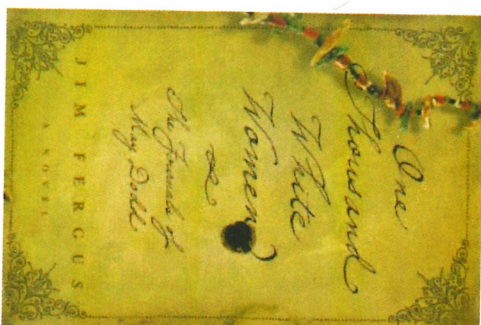 One
Thousand
White
Women
The Journals of
May Dodd
JIM FERGUS
A NOVEL